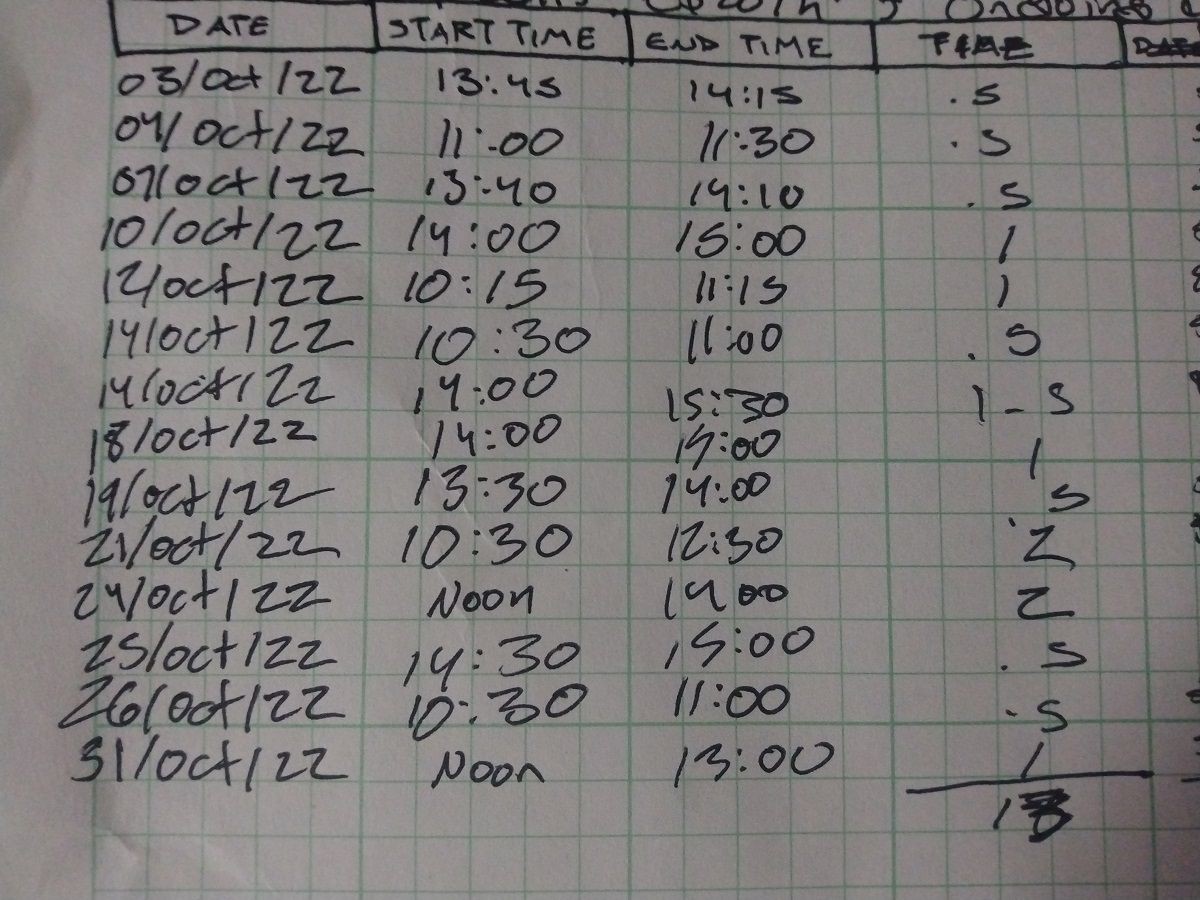 DATE START TIME END TIME
03/Oct/22 13:45 14:15 .5
04/Oct/22 11:00 11:30 .5
07/Oct/22 13:40 14:10 .5
10/Oct/22 14:00 15:00 1
12/Oct/22 10:15 11:15 1
14/Oct/22 10:30 11:00 .5
14/Oct/22 14:00 15:30 1-5
18/Oct/22 14:00 15:00 1
19/Oct/22 13:30 14:00 .5
21/Oct/22 10:30 12:30 2
24/Oct/22 Noon 14:00 2
25/Oct/22 14:30 15:00 .5
26/Oct/22 10:30 11:00 .5
31/Oct/22 Noon 13:00 1